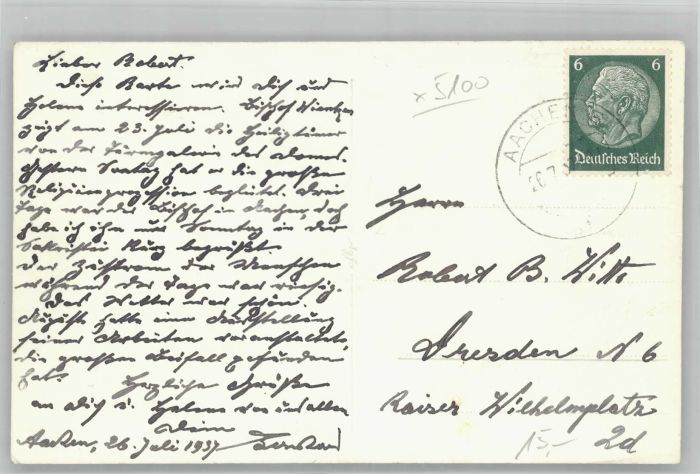 Lieber Robert.
Diese Karte wird Dich und
Helene interessieren. Bischof
zeigt am 23. Juli die Heiligtümer
von der Turmgalerie des Domes.
Gestern Sontag hat er die große
Reliquienprozession begleitet. Drei
Tage war der Bischof in Aachen, doch
habe ich ihn nur Sonntag in der
Sakristei kurz begrüßt.
Der Zustrom der Menschen
während der Tage war riesig.
Das Wetter war schön.
Auguste hatte eine Ausstellung
seiner Arbeiten veranstaltet,
die großen Beifall gefunden
hat. Herzliche Grüße
an Dich u. Helene von uns allen
Dein
Aachen, 26. Juli 1937
x 5100
6 6
Deutsches Reich
AACHEN
Herrn
Robert B. Witte
Dresden N 6
Kaiser Wilhelmplatz
2d
15,-